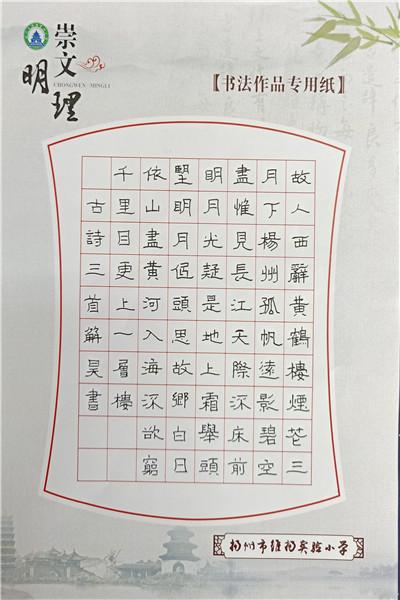 崇文
明理
CHONGWEN MINGLI
【书法作品专用纸】
故人西辭黃鶴樓煙花三
月下楊州孤帆遠影碧空
盡惟見長江天際流床前
明月光疑是地上霜舉頭
朢明月低頭思故鄉白日
依山盡黃河入海流欲窮
千里目更上一層樓
古詩三首解昊書
扬州市维扬实验小学